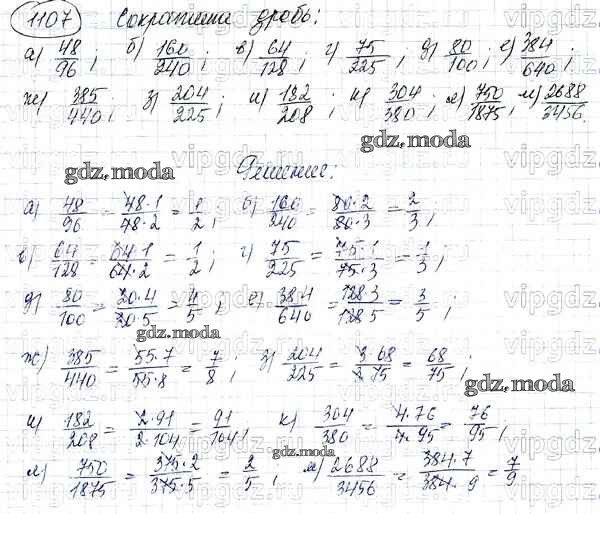 1107 Сократить дробь:
а) 48/96; б) 160/240; в) 64/128; г) 75/225; д) 80/100; е) 384/640;
ж) 385/440; з) 204/225; и) 182/208; к) 304/380; л) 750/1875; м) 2688/3456.
gdz.moda
gdz.moda
Решение:
а) 48/96 = 48·1/48·2 = 1/2; б) 160/240 = 80·2/80·3 = 2/3;
в) 64/128 = 64·1/64·2 = 1/2; г) 75/225 = 75·1/75·3 = 1/3;
д) 80/100 = 20·4/20·5 = 4/5; е) 384/640 = 128·3/128·5 = 3/5;
gdz.moda
ж) 385/440 = 55·7/55·8 = 7/8; з) 204/225 = 3·68/3·75 = 68/75;
gdz.moda
и) 182/208 = 2·91/2·104 = 91/104; к) 304/380 = 4·76/4·95 = 76/95;
gdz.moda
л) 750/1875 = 375·2/375·5 = 2/5; м) 2688/3456 = 384·7/384·9 = 7/9